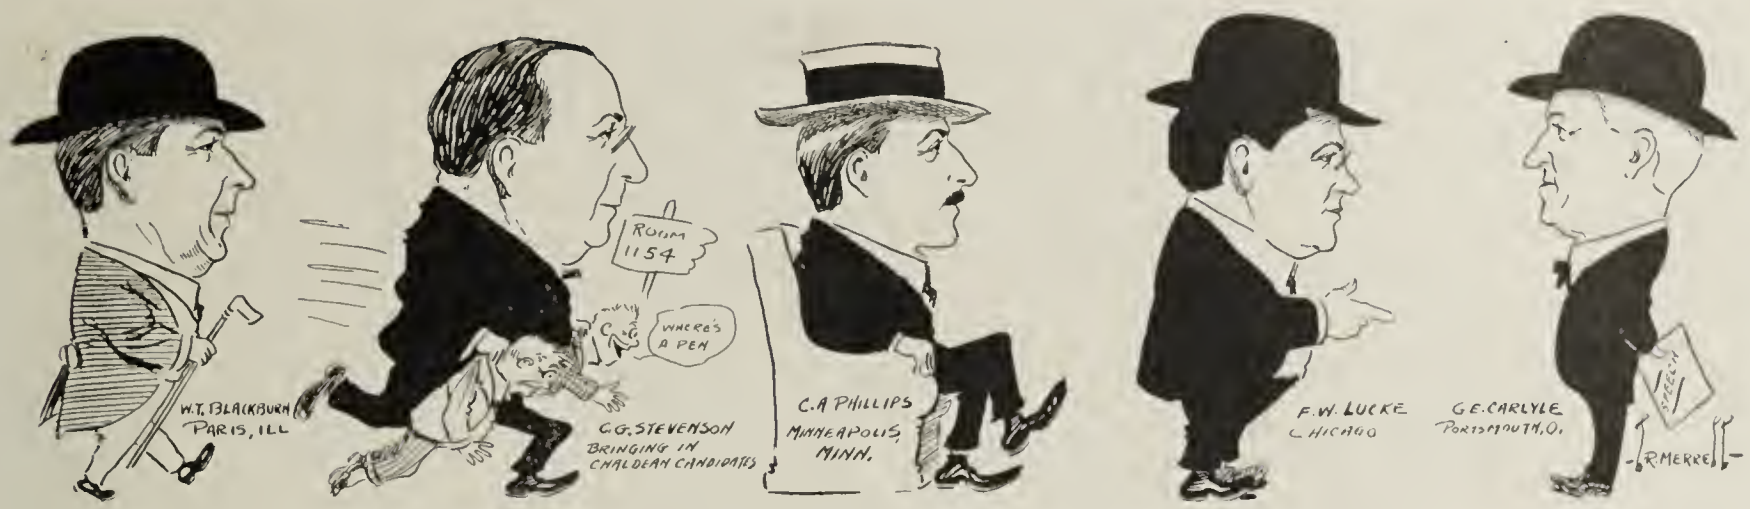 W.T. BLACKBURN
PARIS, ILL
ROOM
1154
WHERE'S
A PEN
C.G. STEVENSON
BRINGING IN
CHALDEAN CANDIDATES
C.A PHILLIPS
MINNEAPOLIS,
MINN.
F.W. LUCKE
CHICAGO
G.E. CARLYLE
PORTSMOUTH, O.
SPEECH
-R.MERRELL-